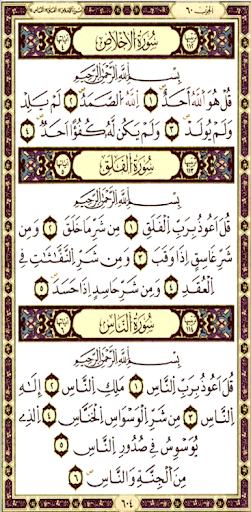 الحزب ٦٠
سُورَةُ الْإِخْلَاصِ
بِسْمِ اللَّهِ الرَّحْمَٰنِ الرَّحِيمِ
قُلْ هُوَ اللَّهُ أَحَدٌ ١ اللَّهُ الصَّمَدُ ٢ لَمْ يَلِدْ
وَلَمْ يُولَدْ ٣ وَلَمْ يَكُن لَّهُ كُفُوًا أَحَدٌ ٤
سُورَةُ الْفَلَقِ
بِسْمِ اللَّهِ الرَّحْمَٰنِ الرَّحِيمِ
قُلْ أَعُوذُ بِرَبِّ الْفَلَقِ ١ مِن شَرِّ مَا خَلَقَ ٢ وَمِن
شَرِّ غَاسِقٍ إِذَا وَقَبَ ٣ وَمِن شَرِّ النَّفَّاثَاتِ فِي
الْعُقَدِ ٤ وَمِن شَرِّ حَاسِدٍ إِذَا حَسَدَ ٥
سُورَةُ النَّاسِ
بِسْمِ اللَّهِ الرَّحْمَٰنِ الرَّحِيمِ
قُلْ أَعُوذُ بِرَبِّ النَّاسِ ١ مَلِكِ النَّاسِ ٢ إِلَٰهِ
النَّاسِ ٣ مِن شَرِّ الْوَسْوَاسِ الْخَنَّاسِ ٤ الَّذِي
يُوَسْوِسُ فِي صُدُورِ النَّاسِ ٥
مِنَ الْجِنَّةِ وَالنَّاسِ ٦
٦٠٤